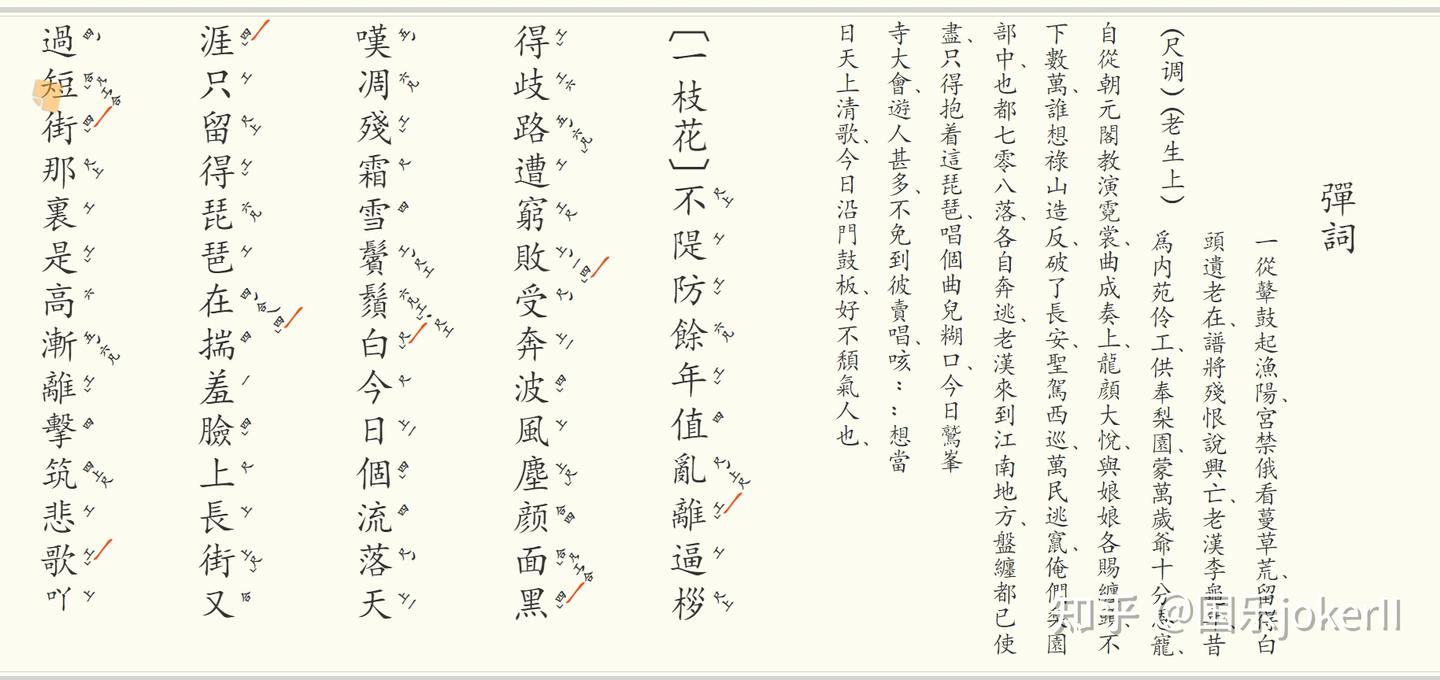 彈詞
一從鼙鼓起漁陽、宮禁俄看蔓草荒、留得白
頭遺老在、譜將殘恨說興亡、老漢李龜年、昔
(尺调)(老生上)爲内苑伶工、供奉梨園、蒙萬歲爺十分恩寵、
自從朝元閣教演霓裳、曲成奏上、龍顏大悅、與娘娘各賜纏頭、不
下數萬、誰想祿山造反、破了長安、聖駕西巡、萬民逃竄、俺們梨園
部中、也都七零八落、各自奔逃、老漢來到江南地方、盤纏都已使
盡、只得抱着這琵琶、唱個曲兒糊口、今日鷲峯
寺大會、遊人甚多、不免到彼賣唱、咳：：想當
日天上清歌、今日沿門鼓板、好不頹氣人也、
〔一枝花〕不隄防餘年值亂離逼拶
得歧路遭窮敗受奔波風塵顏面黑
嘆凋殘霜雪鬢鬚白今日個流落天
涯只留得琵琶在揣羞臉上長街又
過短街那裏是高漸離擊筑悲歌吖
知乎 @国乐jokerll